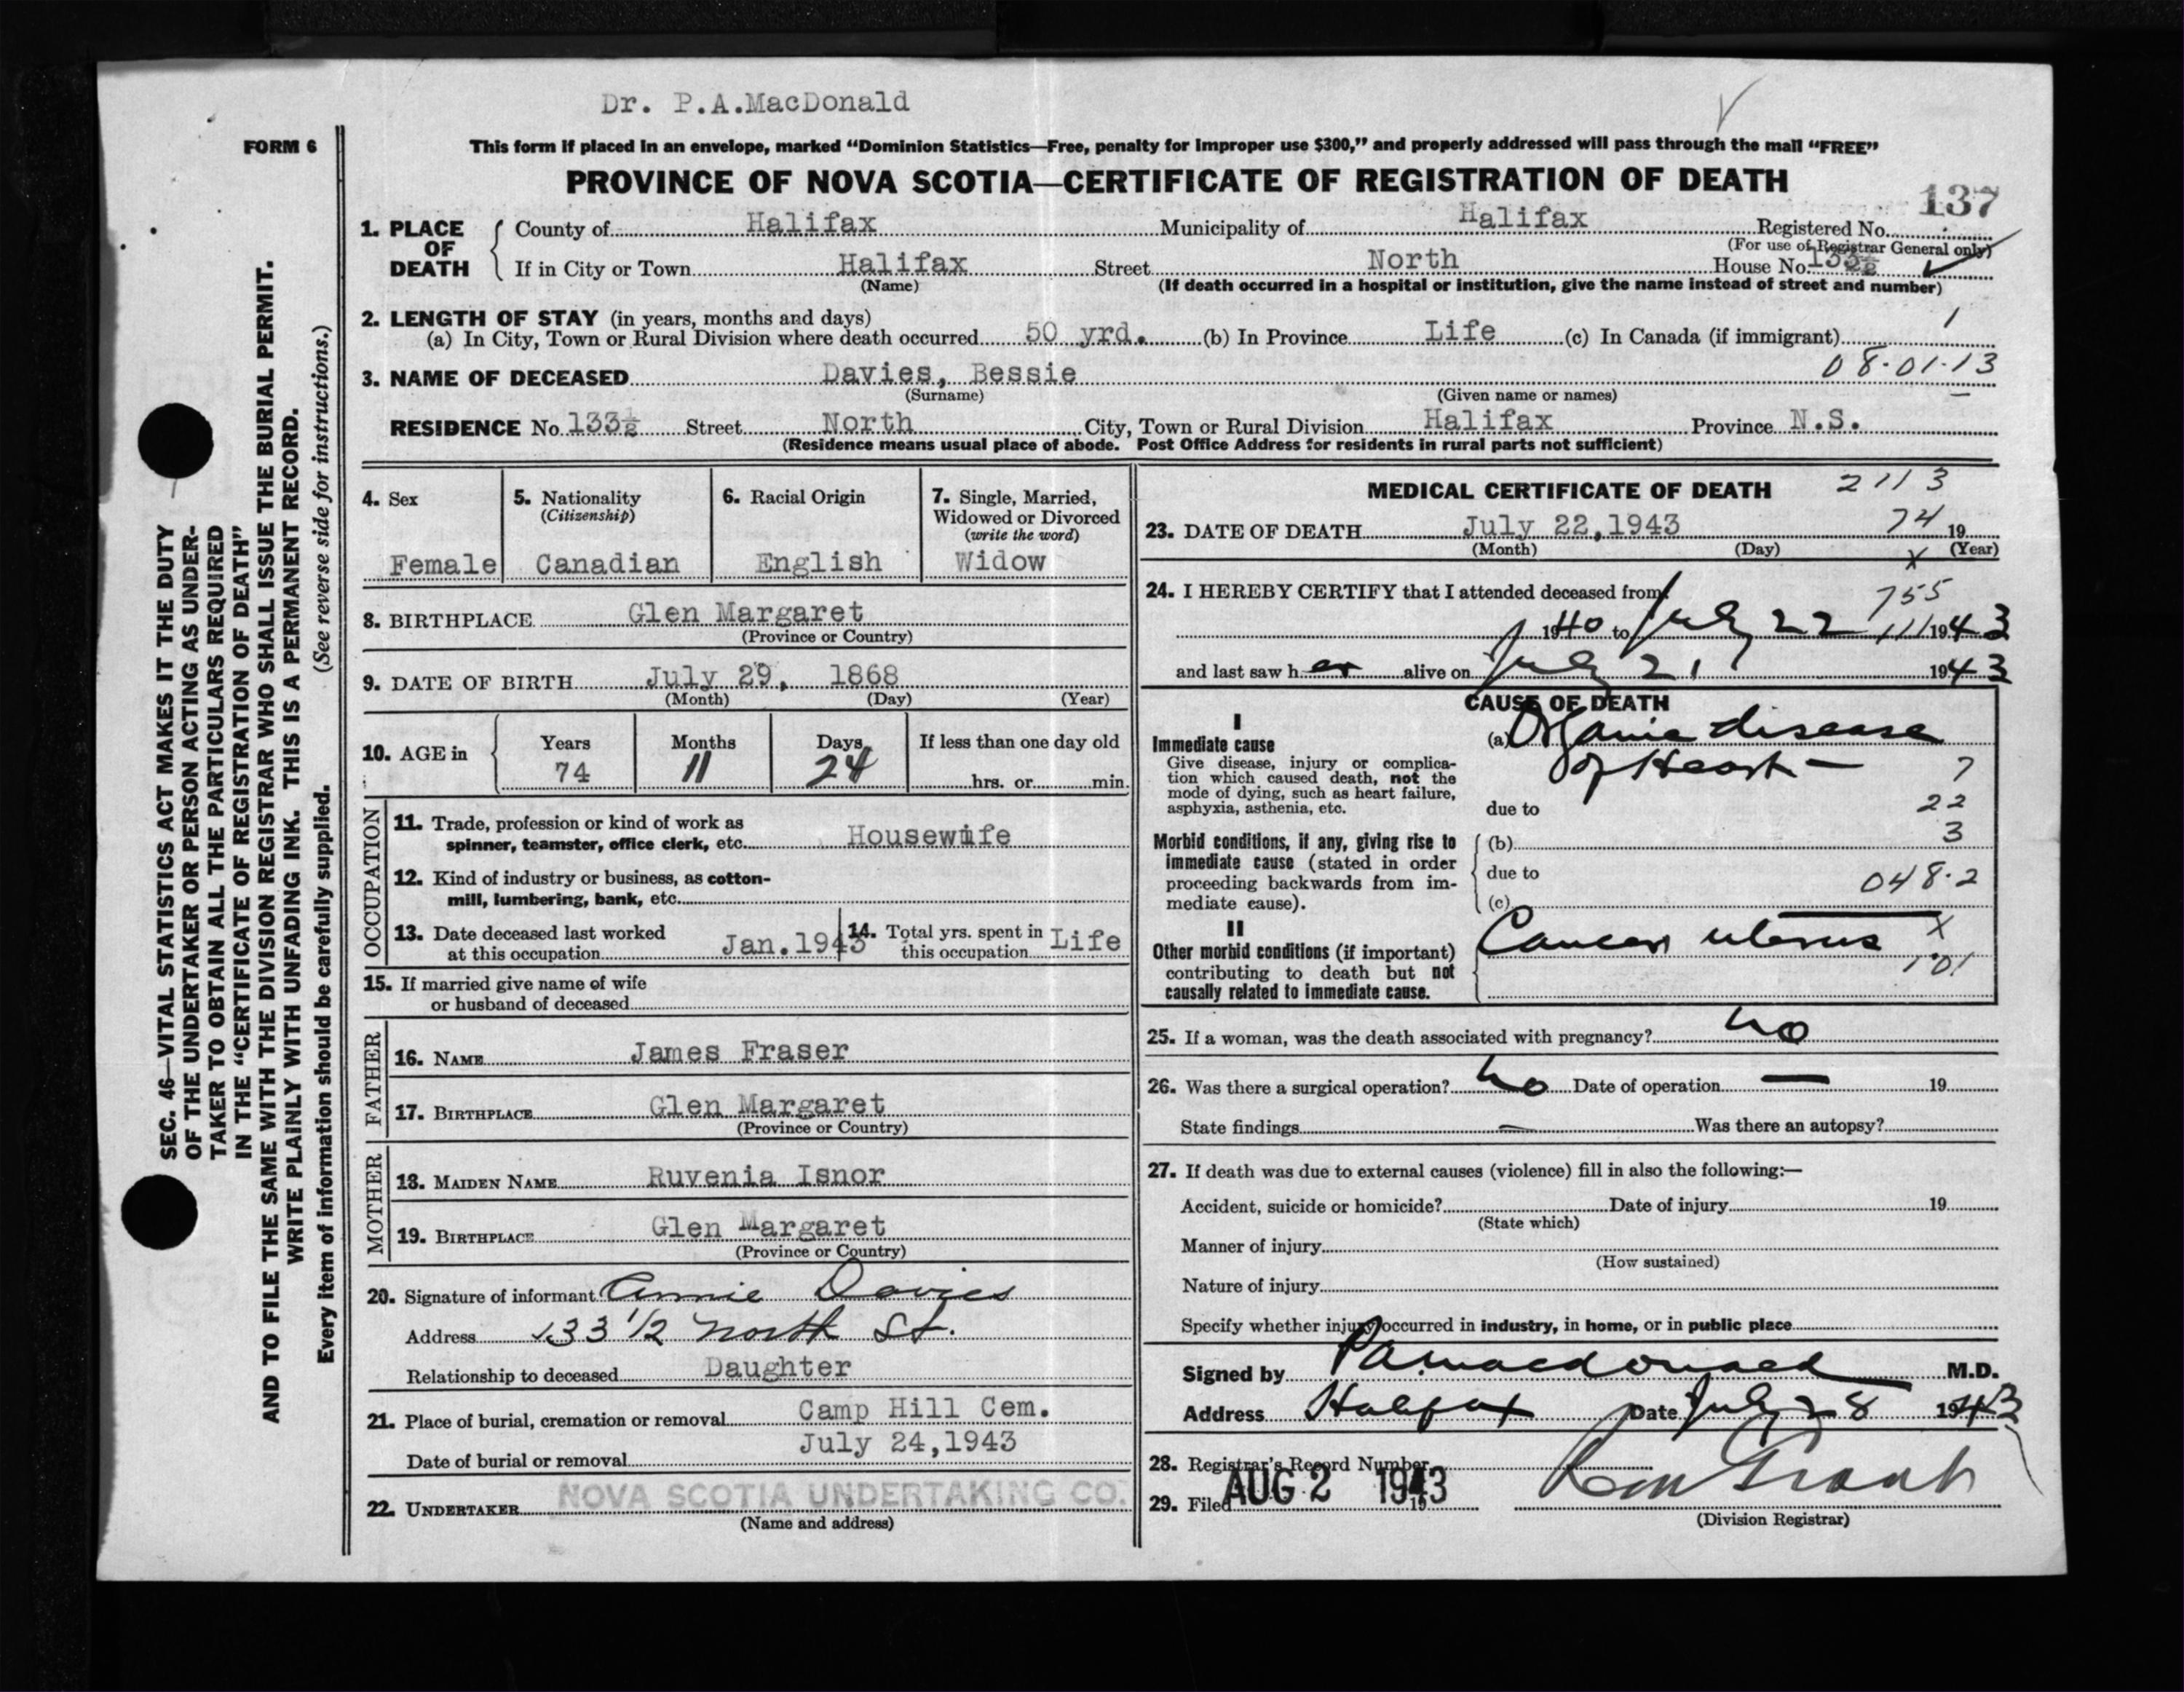 Dr. P.A.MacDonald
FORM 6
This form if placed in an envelope, marked “Dominion Statistics—Free, penalty for improper use $300,” and properly addressed will pass through the mail “FREE”
PROVINCE OF NOVA SCOTIA—CERTIFICATE OF REGISTRATION OF DEATH
137
1. PLACE OF DEATH
County of Halifax Municipality of Halifax Registered No.
(For use of Registrar General only)
If in City or Town Halifax Street North House No. 133½
(Name) (If death occurred in a hospital or institution, give the name instead of street and number)
2. LENGTH OF STAY (in years, months and days) 1
(a) In City, Town or Rural Division where death occurred 50 yrd. (b) In Province Life (c) In Canada (if immigrant)
08-01-13
3. NAME OF DECEASED Davies, Bessie
(Surname) (Given name or names)
RESIDENCE No. 133½ Street North City, Town or Rural Division Halifax Province N.S.
(Residence means usual place of abode. Post Office Address for residents in rural parts not sufficient)
4. Sex
Female
5. Nationality
(Citizenship)
Canadian
6. Racial Origin
English
7. Single, Married,
Widowed or Divorced
(write the word)
Widow
8. BIRTHPLACE Glen Margaret
(Province or Country)
9. DATE OF BIRTH July 29, 1868
(Month) (Day) (Year)
10. AGE in
Years Months Days If less than one day old
74 11 24 hrs. or min.
OCCUPATION
11. Trade, profession or kind of work as
spinner, teamster, office clerk, etc. Housewife
12. Kind of industry or business, as cotton-
mill, lumbering, bank, etc.
13. Date deceased last worked
at this occupation Jan.1943
14. Total yrs. spent in
this occupation Life
15. If married give name of wife
or husband of deceased
FATHER
16. NAME James Fraser
17. BIRTHPLACE Glen Margaret
(Province or Country)
MOTHER
18. MAIDEN NAME Ruvenia Isnor
19. BIRTHPLACE Glen Margaret
(Province or Country)
20. Signature of informant Annie Davies
Address 133 1/2 North St.
Relationship to deceased Daughter
21. Place of burial, cremation or removal Camp Hill Cem.
Date of burial or removal July 24,1943
22. UNDERTAKER NOVA SCOTIA UNDERTAKING CO.
(Name and address)
MEDICAL CERTIFICATE OF DEATH 2113
23. DATE OF DEATH July 22,1943 74 19
(Month) (Day) (Year)
x
24. I HEREBY CERTIFY that I attended deceased from 755
1940 to July 22 111 1943
and last saw her alive on July 21 1943
CAUSE OF DEATH
I
Immediate cause
Give disease, injury or complica-
tion which caused death, not the
mode of dying, such as heart failure,
asphyxia, asthenia, etc.
(a) Organic disease
of Heart — 7
due to 22
Morbid conditions, if any, giving rise to
immediate cause (stated in order
proceeding backwards from im-
mediate cause).
(b) 3
due to 048.2
(c)
II
Other morbid conditions (if important)
contributing to death but not
causally related to immediate cause.
Cancer uterus x
1.01
25. If a woman, was the death associated with pregnancy? no
26. Was there a surgical operation? no Date of operation — 19
State findings — Was there an autopsy?
27. If death was due to external causes (violence) fill in also the following:—
Accident, suicide or homicide? Date of injury 19
(State which)
Manner of injury
(How sustained)
Nature of injury
Specify whether injury occurred in industry, in home, or in public place
Signed by PA macdonald M.D.
Address Halifax Date July 28 1943
28. Registrar's Record Number
29. Filed AUG 2 1943 19
(Division Registrar)
SEC. 46—VITAL STATISTICS ACT MAKES IT THE DUTY
OF THE UNDERTAKER OR PERSON ACTING AS UNDER-
TAKER TO OBTAIN ALL THE PARTICULARS REQUIRED
IN THE “CERTIFICATE OF REGISTRATION OF DEATH”
AND TO FILE THE SAME WITH THE DIVISION REGISTRAR WHO SHALL ISSUE THE BURIAL PERMIT.
WRITE PLAINLY WITH UNFADING INK. THIS IS A PERMANENT RECORD.
Every item of information should be carefully supplied. (See reverse side for instructions.)